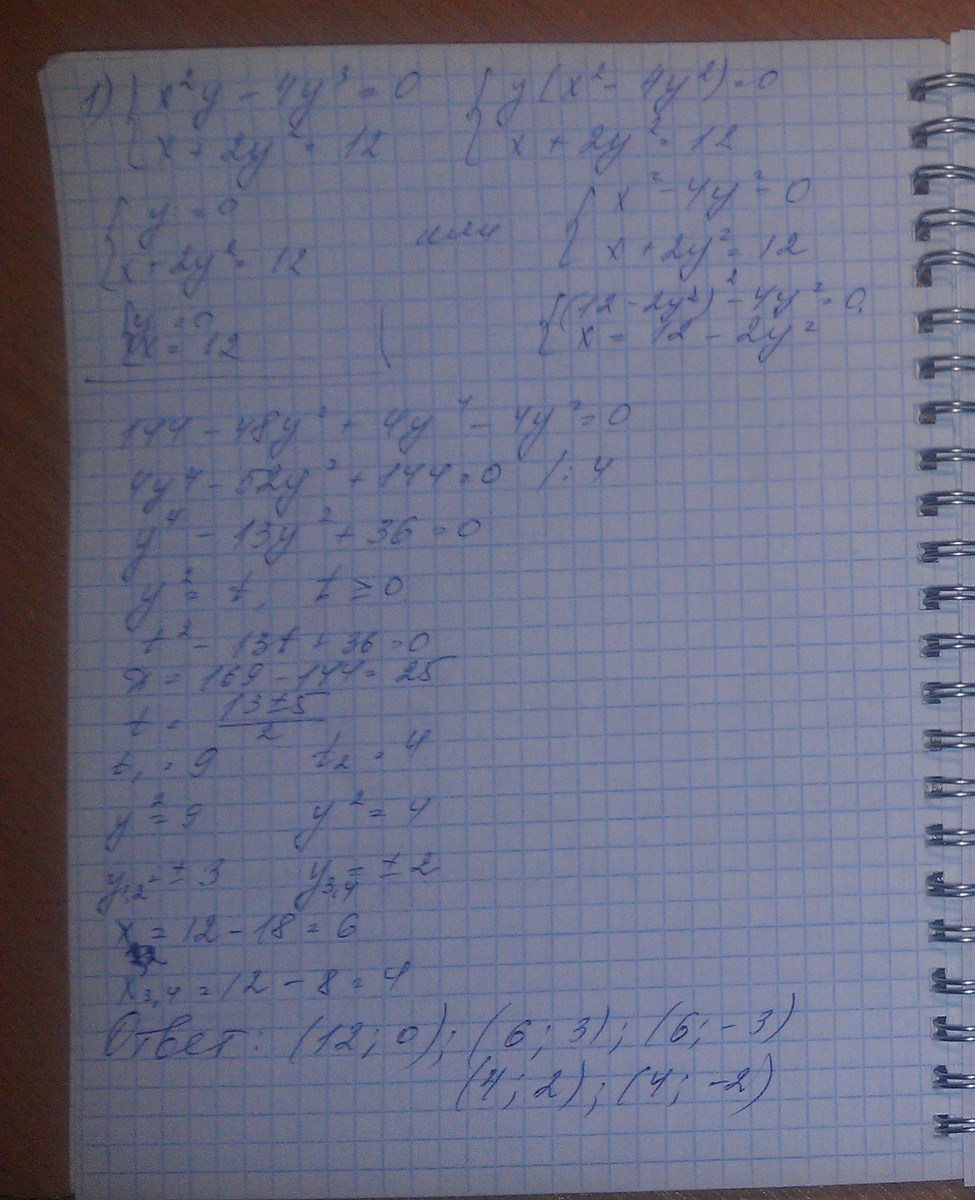 1) { x²y - 4y³ = 0 { y(x² - 4y²) = 0
x + 2y² = 12 x + 2y² = 12
{ y = 0 или { x² - 4y² = 0
x + 2y² = 12 x + 2y² = 12
{ y = 0 { (12 - 2y²)² - 4y² = 0
x = 12 x = 12 - 2y²
144 - 48y² + 4y⁴ - 4y² = 0
4y⁴ - 52y² + 144 = 0 /: 4
y⁴ - 13y² + 36 = 0
y² = t, t ≥ 0
t² - 13t + 36 = 0
D = 169 - 144 = 25
t = (13 ± 5)/2
t₁ = 9 t₂ = 4
y² = 9 y² = 4
y₁,₂ = ± 3 y₃,₄ = ± 2
x = 12 - 18 = 6
x₃,₄ = 12 - 8 = 4
Ответ: (12; 0); (6; 3); (6; -3)
(4; 2); (4; -2)